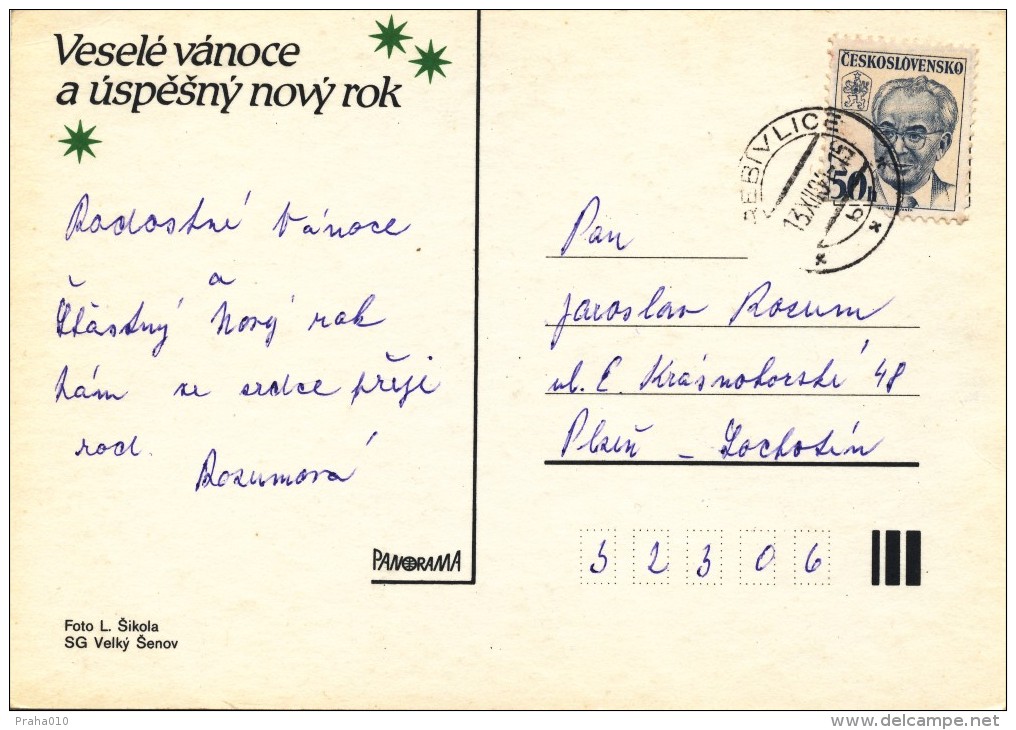 Veselé vánoce
a úspěšný nový rok
Radostné Vánoce
a
Šťastný Nový rok
Vám ze srdce přeji
rod.
Rozumová
PANORAMA
Foto L. Šikola
SG Velký Šenov
ČESKOSLOVENSKO
50h
TŘEBÍVLICE
13.XII.84-15
Pan
Jaroslav Rozum
ul. E. Krásnohorské 48
Plzeň - Lochotín
3 2 3 0 6
Praha010
www.delcampe.net